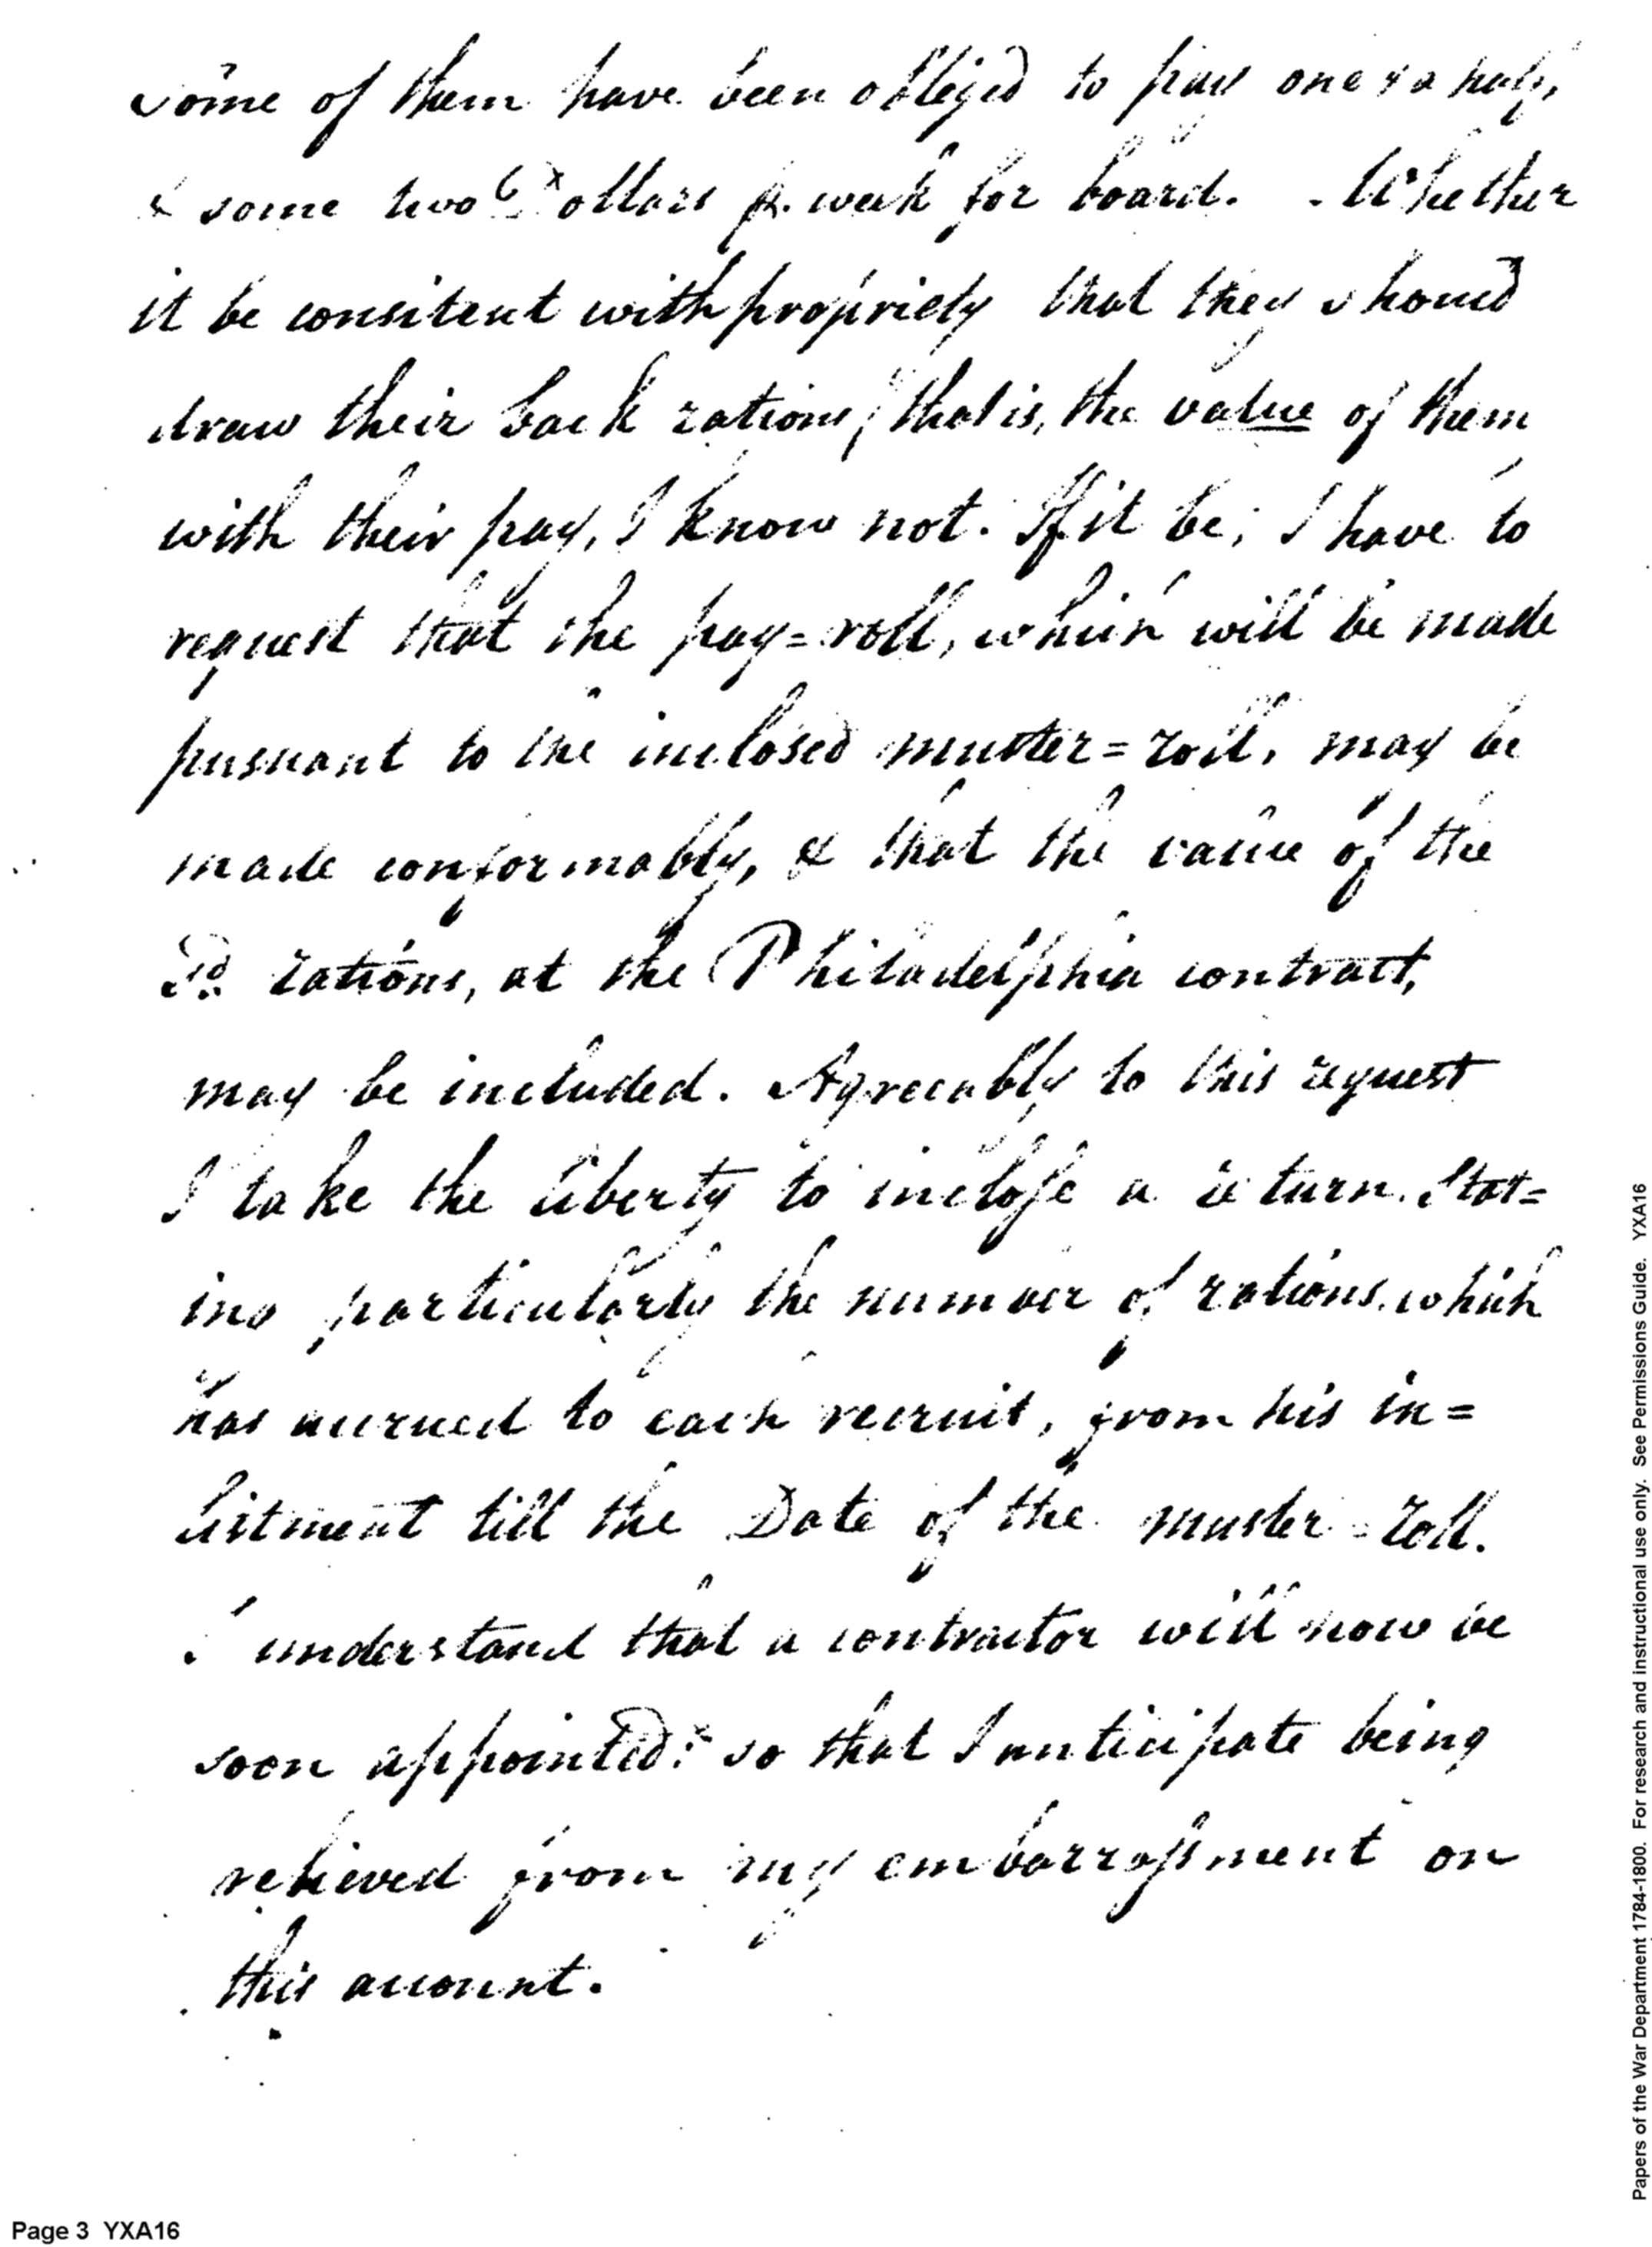 some of them have been obliged to pay one & a half,
& some two Dollars pr. week for board. - Whether
it be consitent with propriety that they should
draw their back rations, that is, the value of them
with their pay, I know not. If it be, I have to
request that the pay=roll, which will be made
pursuant to the inclosed muster=roll, may be
made conformably, & that the value of the
sd. rations, at the Philadelphia contract,
may be included. Agreeably to this request
I take the liberty to inclose a return stat=
ing particularly the number of rations which
has accrued to each recruit, from his in=
listment till the Date of the muster=roll.
I understand that a contractor will now be
soon appointed: so that I anticipate being
relieved from my embarrassment on
this account.
Page 3 YXA16
Papers of the War Department 1784-1800. For research and instructional use only. See Permissions Guide. YXA16